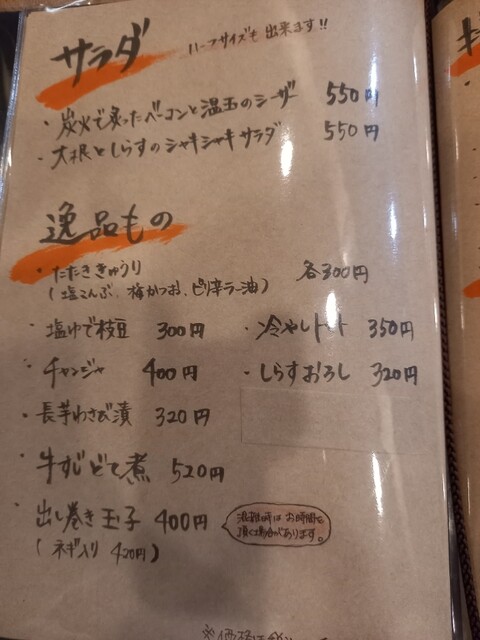 サラダ ハーフサイズも出来ます!!
・炭火で炙ったベーコンと温玉のシーザー 550円
・大根としらすのシャキシャキサラダ 550円
逸品もの
・たたききゅうり 各300円
(塩こんぶ、梅かつお、ピリ辛ラー油)
・塩ゆで枝豆 300円 ・冷やしトマト 350円
・チャンジャ 400円 ・しらすおろし 320円
・長芋わさび漬 320円
・牛すじどて煮 520円
・出し巻き玉子 400円
(ネギ入り 420円)
混雑時はお時間を
頂く場合があります。